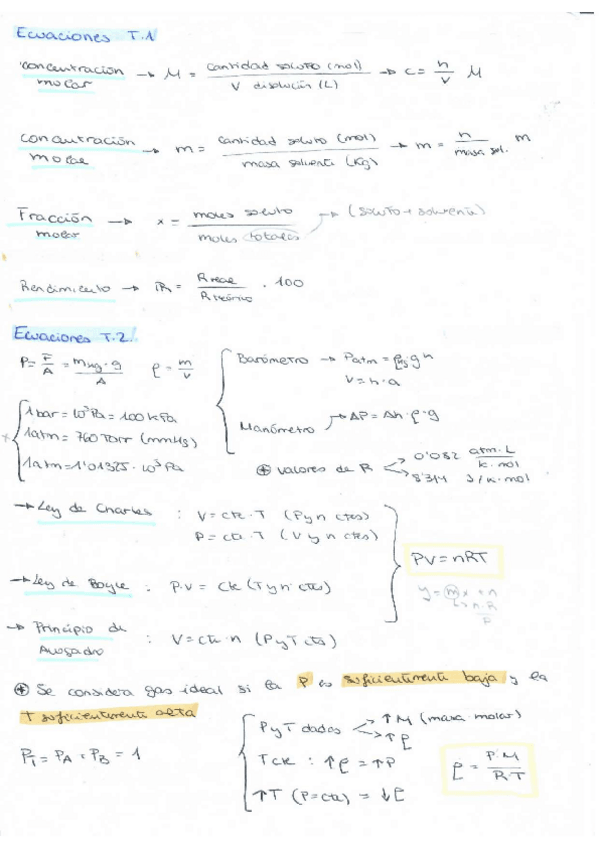 Ecuaciones T.1
concentración molar → M = cantidad soluto (mol) / V disolución (L) → c = n/V M
concentración molal → m = cantidad soluto (mol) / masa solvente (kg) → m = n / masa sol. m
Fracción molar → x = moles soluto / moles totales → (soluto + solvente)
Rendimiento → R = R real / R teórico · 100
Ecuaciones T.2.
P = F/A = m · g / A ρ = m/V
Barómetro → Patm = ρ g h
V = h · a
Manómetro → ΔP = Δh · ρ · g
1 bar = 10⁵ Pa = 100 kPa
1 atm = 760 Torr (mmHg)
1 atm = 1'01325 · 10⁵ Pa
⊕ valores de R → 0'082 atm·L / K·mol
→ 8'314 J/K·mol
→ Ley de Charles : V = cte · T (P y n ctes)
P = cte · T (V y n ctes)
→ Ley de Boyle : P·V = cte (T y n ctes)
→ Principio de Avogadro : V = cte · n (P y T cts)
PV = nRT
y = mx + n
→ n·R / P
⊕ Se considera gas ideal si la P es suficientemente baja y la
T suficientemente alta
P y T dados → ↑ M (masa molar)
→ ↑ ρ
T cte : ↑ ρ = ↑ P
↑ T (P = cte) = ↓ ρ
ρ = P·M / R·T